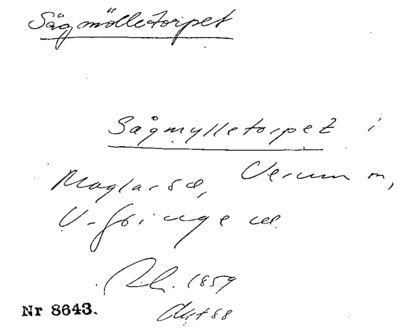 Sågmölletorpet
Sågmylletorpet i
Maglarsä, Verum sn,
V-Göinge
1859
Nr 8643.